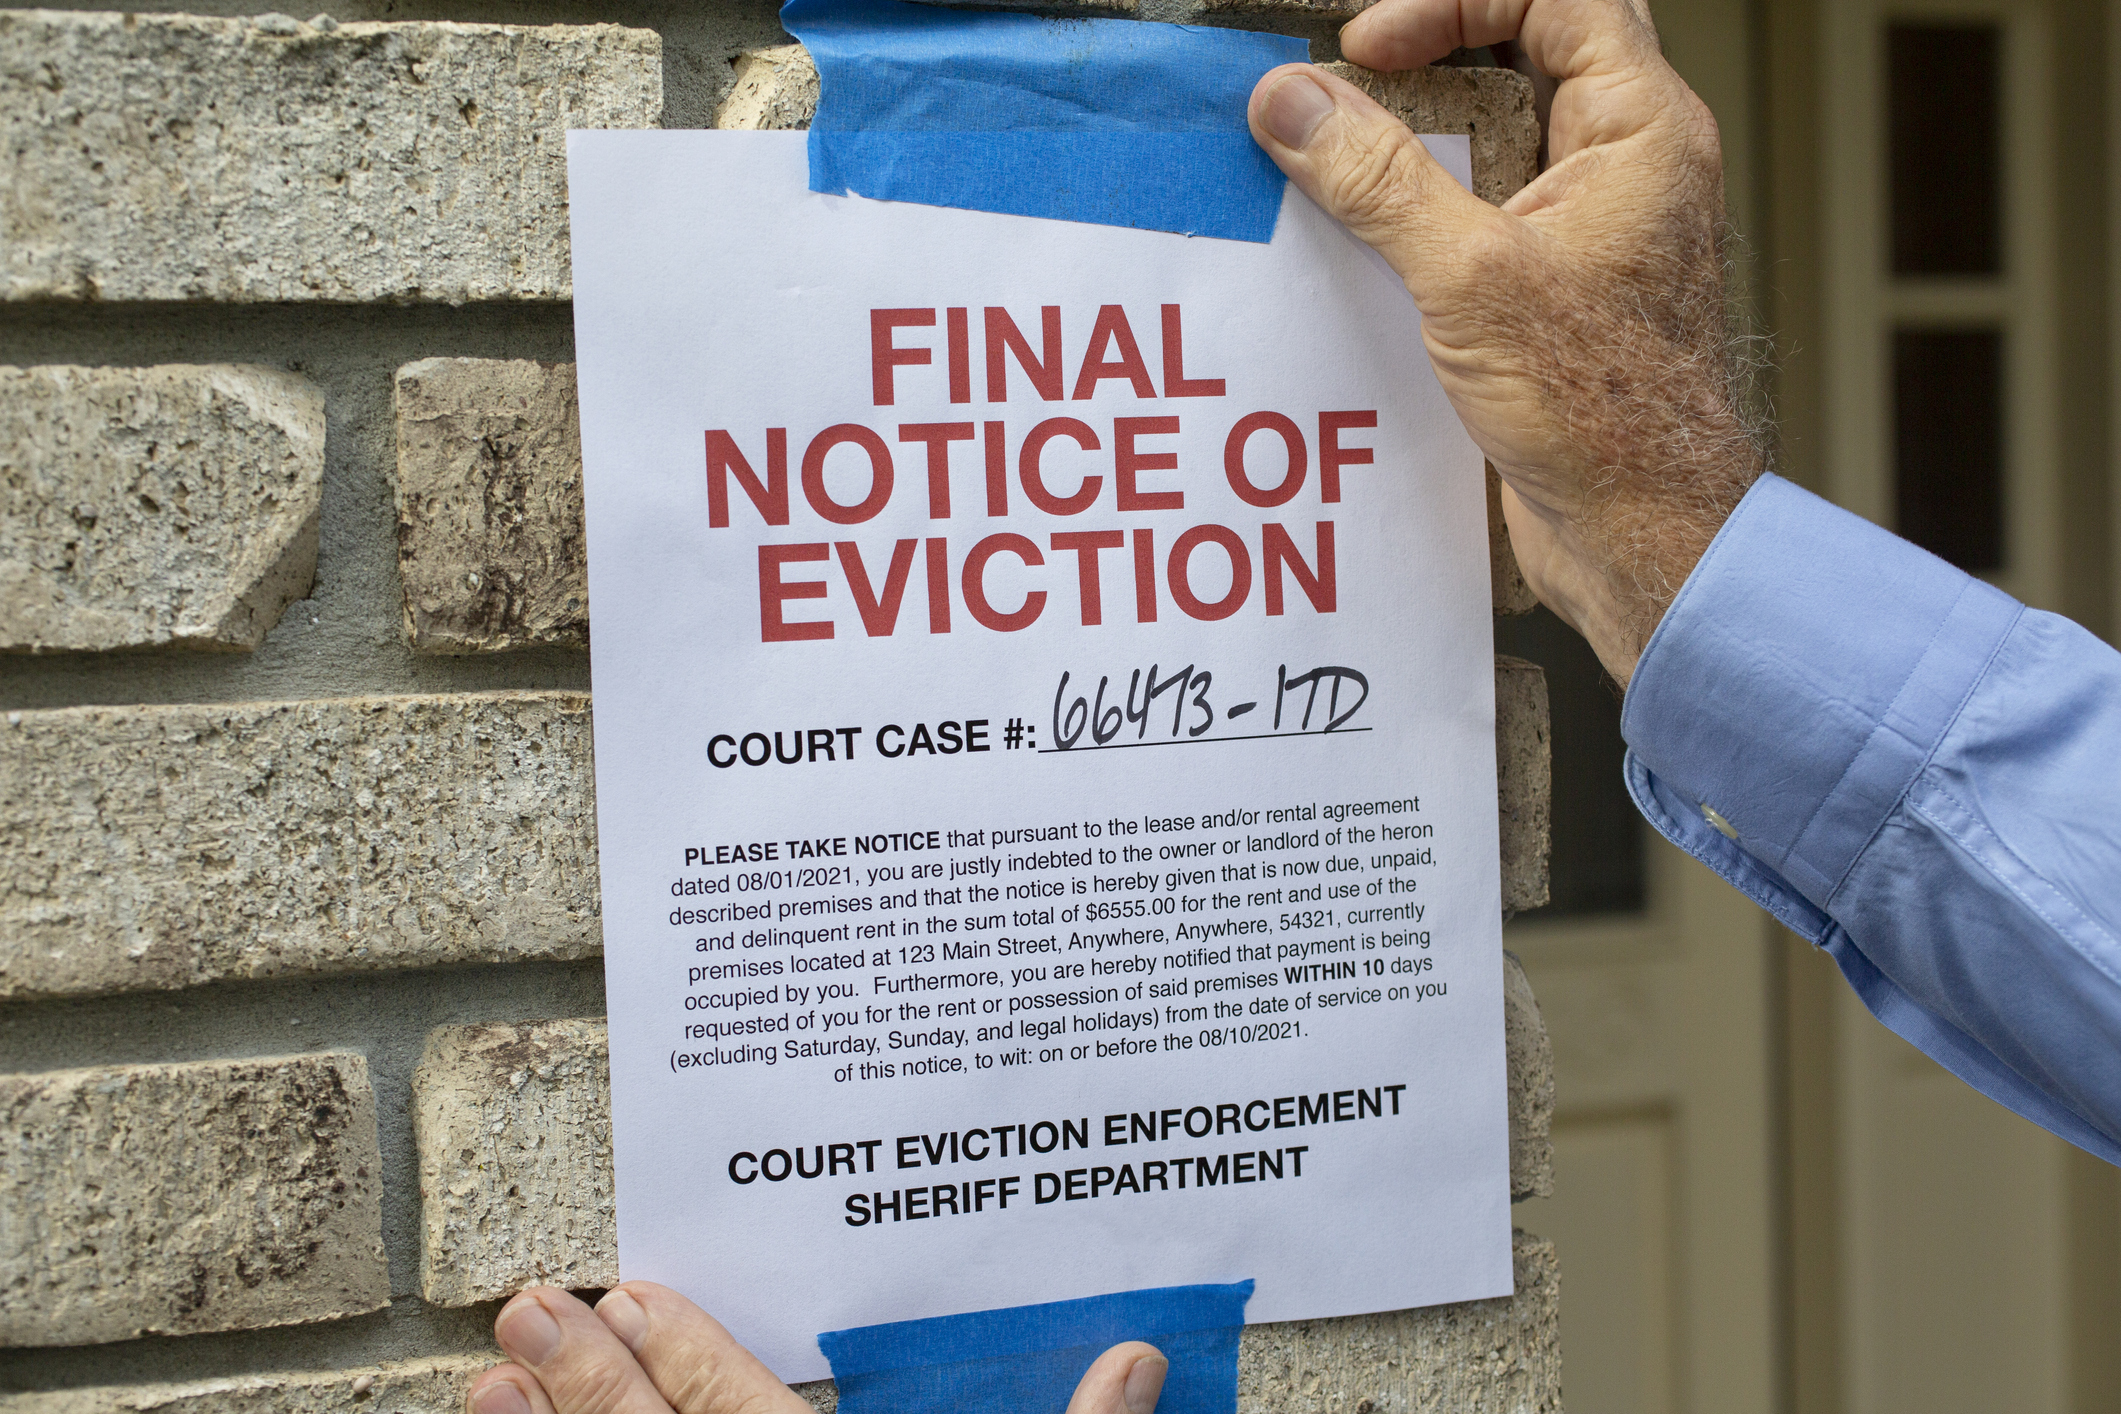 FINAL
NOTICE OF
EVICTION
COURT CASE #: 66473-17D
PLEASE TAKE NOTICE that pursuant to the lease and/or rental agreement
dated 08/01/2021, you are justly indebted to the owner or landlord of the heron
described premises and that the notice is hereby given that is now due, unpaid,
and delinquent rent in the sum total of $6555.00 for the rent and use of the
premises located at 123 Main Street, Anywhere, Anywhere, 54321, currently
occupied by you.  Furthermore, you are hereby notified that payment is being
requested of you for the rent or possession of said premises WITHIN 10 days
(excluding Saturday, Sunday, and legal holidays) from the date of service on you
of this notice, to wit: on or before the 08/10/2021.
COURT EVICTION ENFORCEMENT
SHERIFF DEPARTMENT